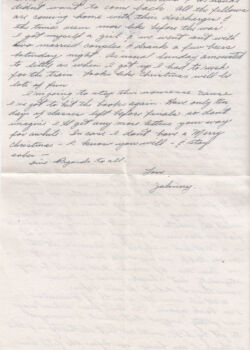 didn't want to come back. All the fellows
are coming home with their discharges &
the times seem more like before the war.
I got myself a girl & we went out with
two married couples & drank a few beers
Saturday night. As usual Sunday amounted
to little as when I got up I had to rush
for the train. Looks like Christmas will be
lots of fun.
I'm going to stop this nonsense 'cause
I've got to hit the books again. Have only ten
days of classes left before finals so don't
imagine I'll get any more letters your way
for awhile. In case I don't have a Merry
Christmas - I know you will - & stay
sober -
Give Regards to all.
Love
Johnny